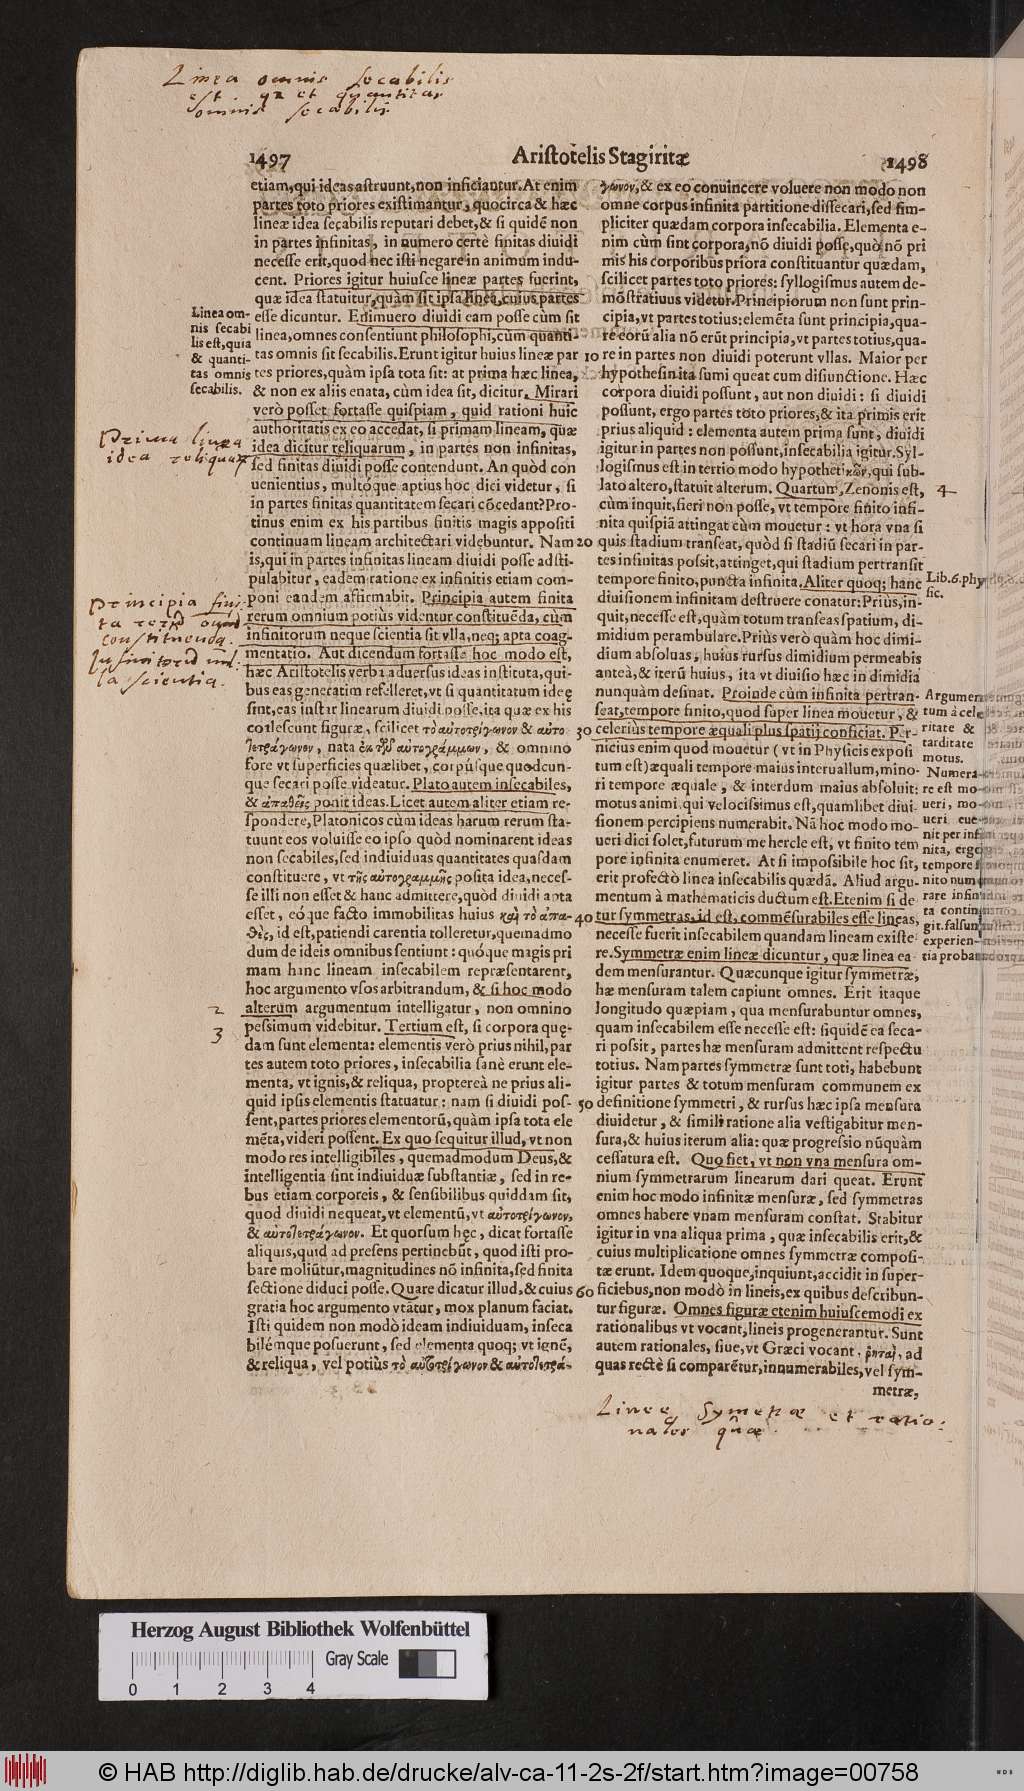 Linea omnis secabilis
est qa et quantitas
omnis secabilis
1497 Aristotelis Stagiritæ 1498
etiam, qui ideas astruunt, non inficiantur. At enim
partes toto priores existimantur, quocirca & hæc
lineæ idea secabilis reputari debet, & si quidē non
in partes infinitas, in numero certè finitas diuidi
necesse erit, quod nec isti negare in animum indu-
cent. Priores igitur huiusce lineæ partes fuerint,
quæ idea statuitur, quàm sit ipsa linea, cuius partes
esse dicuntur. Enimuero diuidi eam posse cùm sit
linea, omnes consentiunt philosophi, cùm quanti-
tas omnis sit secabilis. Erunt igitur huius lineæ par
tes priores, quàm ipsa tota sit: at prima hæc linea,
& non ex aliis enata, cùm idea sit, dicitur. Mirari
verò posset fortasse quispiam, quid rationi huic
authoritatis ex eo accedat, si primam lineam, quæ
idea dicitur reliquarum, in partes non infinitas,
sed finitas diuidi posse contendunt. An quòd con
uenientius, multóque aptius hoc dici videtur, si
in partes finitas quantitatem secari cōcedant? Pro-
tinus enim ex his partibus finitis magis appositi
continuam lineam architectari videbuntur. Nam
is, qui in partes infinitas lineam diuidi posse adsti-
pulabitur, eadem ratione ex infinitis etiam com-
poni eandem affirmabit. Principia autem finita
rerum omnium potiùs videntur constituēda, cùm
infinitorum neque scientia sit vlla, neq; apta coag-
mentatio. Aut dicendum fortasse hoc modo est,
hæc Aristotelis verba aduersus ideas instituta, qui-
bus eas generatim refelleret, vt si quantitatum ideę
sint, eas instar linearum diuidi posse, ita quæ ex his
coalescunt figuræ, scilicet τὸ αὐτοτρίγωνον & αὐτο
τετράγωνον, nata ἐκ τῶν αὐτογράμμων, & omnino
fore vt superficies quælibet, corpúsque quodcun-
que secari posse videatur. Plato autem insecabiles,
& ἀπαθεῖς ponit ideas. Licet autem aliter etiam re-
spondere, Platonicos cùm ideas harum rerum sta-
tuunt eos voluisse eo ipso quòd nominarent ideas
non secabiles, sed indiuiduas quantitates quasdam
constituere, vt τῆς αὐτογραμμῆς posita idea, neces-
se illi non esset & hanc admittere, quòd diuidi apta
esset, eóque facto immobilitas huius καὶ τὸ ἀπα-
θὲς, id est, patiendi carentia tolleretur, quemadmo
dum de ideis omnibus sentiunt: quóque magis pri
mam hanc lineam insecabilem repræsentarent,
hoc argumento vsos arbitrandum, & si hoc modo
alterum argumentum intelligatur, non omnino
pessimum videbitur. Tertium est, si corpora quę-
dam sunt elementa: elementis verò prius nihil, par
tes autem toto priores, insecabilia sanè erunt ele-
menta, vt ignis, & reliqua, proptereà ne prius ali-
quid ipsis elementis statuatur: nam si diuidi pos-
sent, partes priores elementorū, quàm ipsa tota ele
mēta, videri possent. Ex quo sequitur illud, vt non
modo res intelligibiles, quemadmodum Deus, &
intelligentia sint indiuiduæ substantiæ, sed in re-
bus etiam corporeis, & sensibilibus quiddam sit,
quod diuidi nequeat, vt elementū, vt αὐτοτρίγωνον,
& αὐτοτετράγωνον. Et quorsum hęc, dicat fortasse
aliquis, quid ad præsens pertinebūt, quod isti pro-
bare moliūtur, magnitudines nō infinita, sed finita
sectione diduci posse. Quare dicatur illud, & cuius
gratia hoc argumento vtātur, mox planum faciat.
Isti quidem non modò ideam indiuiduam, inseca
bilémque posuerunt, sed elementa quoq; vt ignē,
& reliqua, vel potiùs τὸ αὐτοτρίγωνον & αὐτοτετρά-
Linea om-
nis secabi
lis est, quia
& quanti-
tas omnis
secabilis.
Prima linea
idea reliquarū
Principia fini-
ta rerū omniū
constituenda.
Infinitorū nul-
la scientia.
2
3
10
20
30
40
50
60
γωνον, & ex eo conuincere voluere non modo non
omne corpus infinita partitione dissecari, sed sim-
pliciter quædam corpora insecabilia. Elementa e-
nim cùm sint corpora, nō diuidi posse, quò nō pri
mis his corporibus priora constituantur quædam,
scilicet partes toto priores: syllogismus autem de-
mōstratiuus videtur. Principiorum non sunt prin-
cipia, vt partes totius: elemēta sunt principia, qua-
re eorū alia nō erūt principia, vt partes totius, qua-
re in partes non diuidi poterunt vllas. Maior per
hypothesin ita sumi queat cum disiunctione. Hæc
corpora diuidi possunt, aut non diuidi: si diuidi
possunt, ergo partes toto priores, & ita primis erit
prius aliquid: elementa autem prima sunt, diuidi
igitur in partes non possunt, insecabilia igitur. Syl-
logismus est in tertio modo hypothetικῶν, qui sub-
lato altero, statuit alterum. Quartum, Zenonis est,
cùm inquit, fieri non posse, vt tempore finito infi-
nita quispiā attingat cùm mouetur: vt hora vna si
quis stadium transeat, quòd si stadiū secari in par-
tes infinitas possit, attinget, qui stadium pertransit
tempore finito, puncta infinita. Aliter quoq; hanc
diuisionem infinitam destruere conatur: Prius, in-
quit, necesse est, quàm totum transeas spatium, di-
midium perambulare. Priùs verò quàm hoc dimi-
dium absoluas, huius rursus dimidium permeabis
anteà, & iterū huius, ita vt diuisio hæc in dimidia
nunquàm desinat. Proinde cùm infinita pertran-
seat, tempore finito, quod super linea mouetur, &
celerius tempore æquali plus spatij conficiat. Per-
nicius enim quod mouetur (vt in Physicis exposi
tum est) æquali tempore maius interuallum, mino-
ri tempore æquale, & interdum maius absoluit:
motus animi, qui velocissimus est, quamlibet diui-
sionem percipiens numerabit. Nā hoc modo mo-
ueri dici solet, futurum me hercle est, vt finito tem
pore infinita enumeret. At si impossibile hoc sit,
erit profectò linea insecabilis quædā. Aliud argu-
mentum à mathematicis ductum est. Etenim si de
tur symmetras, id est, commēsurabiles esse lineas,
necesse fuerit insecabilem quandam lineam existe-
re. Symmetræ enim lineæ dicuntur, quæ linea ea-
dem mensurantur. Quæcunque igitur symmetræ,
hæ mensuram talem capiunt omnes. Erit itaque
longitudo quæpiam, qua mensurabuntur omnes,
quam insecabilem esse necesse est: siquidē ea seca-
ri possit, partes hæ mensuram admittent respectu
totius. Nam partes symmetræ sunt toti, habebunt
igitur partes & totum mensuram communem ex
definitione symmetri, & rursus hæc ipsa mensura
diuidetur, & simili ratione alia vestigabitur men-
sura, & huius iterum alia: quæ progressio nūquàm
cessatura est. Quo fiet, vt non vna mensura om-
nium symmetrarum linearum dari queat. Erunt
enim hoc modo infinitæ mensuræ, sed symmetras
omnes habere vnam mensuram constat. Stabitur
igitur in vna aliqua prima, quæ insecabilis erit, &
cuius multiplicatione omnes symmetræ composi-
tæ erunt. Idem quoque, inquiunt, accidit in super-
ficiebus, non modò in lineis, ex quibus describun-
tur figuræ. Omnes figuræ etenim huiuscemodi ex
rationalibus vt vocant, lineis progenerantur. Sunt
autem rationales, siue, vt Græci vocant, ῥηταὶ, ad
quas rectè si comparētur, innumerabiles, vel sym-
metræ,
4
Lib. 6. phy
sic.
Argumen
tum à cele
ritate &
tarditate
motus.
Numera-
re est mo-
ueri, mo-
ueri eue-
nit per infi
nita, ergo
tempore fi
nito nume
rare infin
ta contin
git. falsum
experien-
tia proba
Lineę Symetræ et ratio-
nales quæ
Herzog August Bibliothek Wolfenbüttel
Gray Scale
0 1 2 3 4
© HAB http://diglib.hab.de/drucke/alv-ca-11-2s-2f/start.htm?image=00758